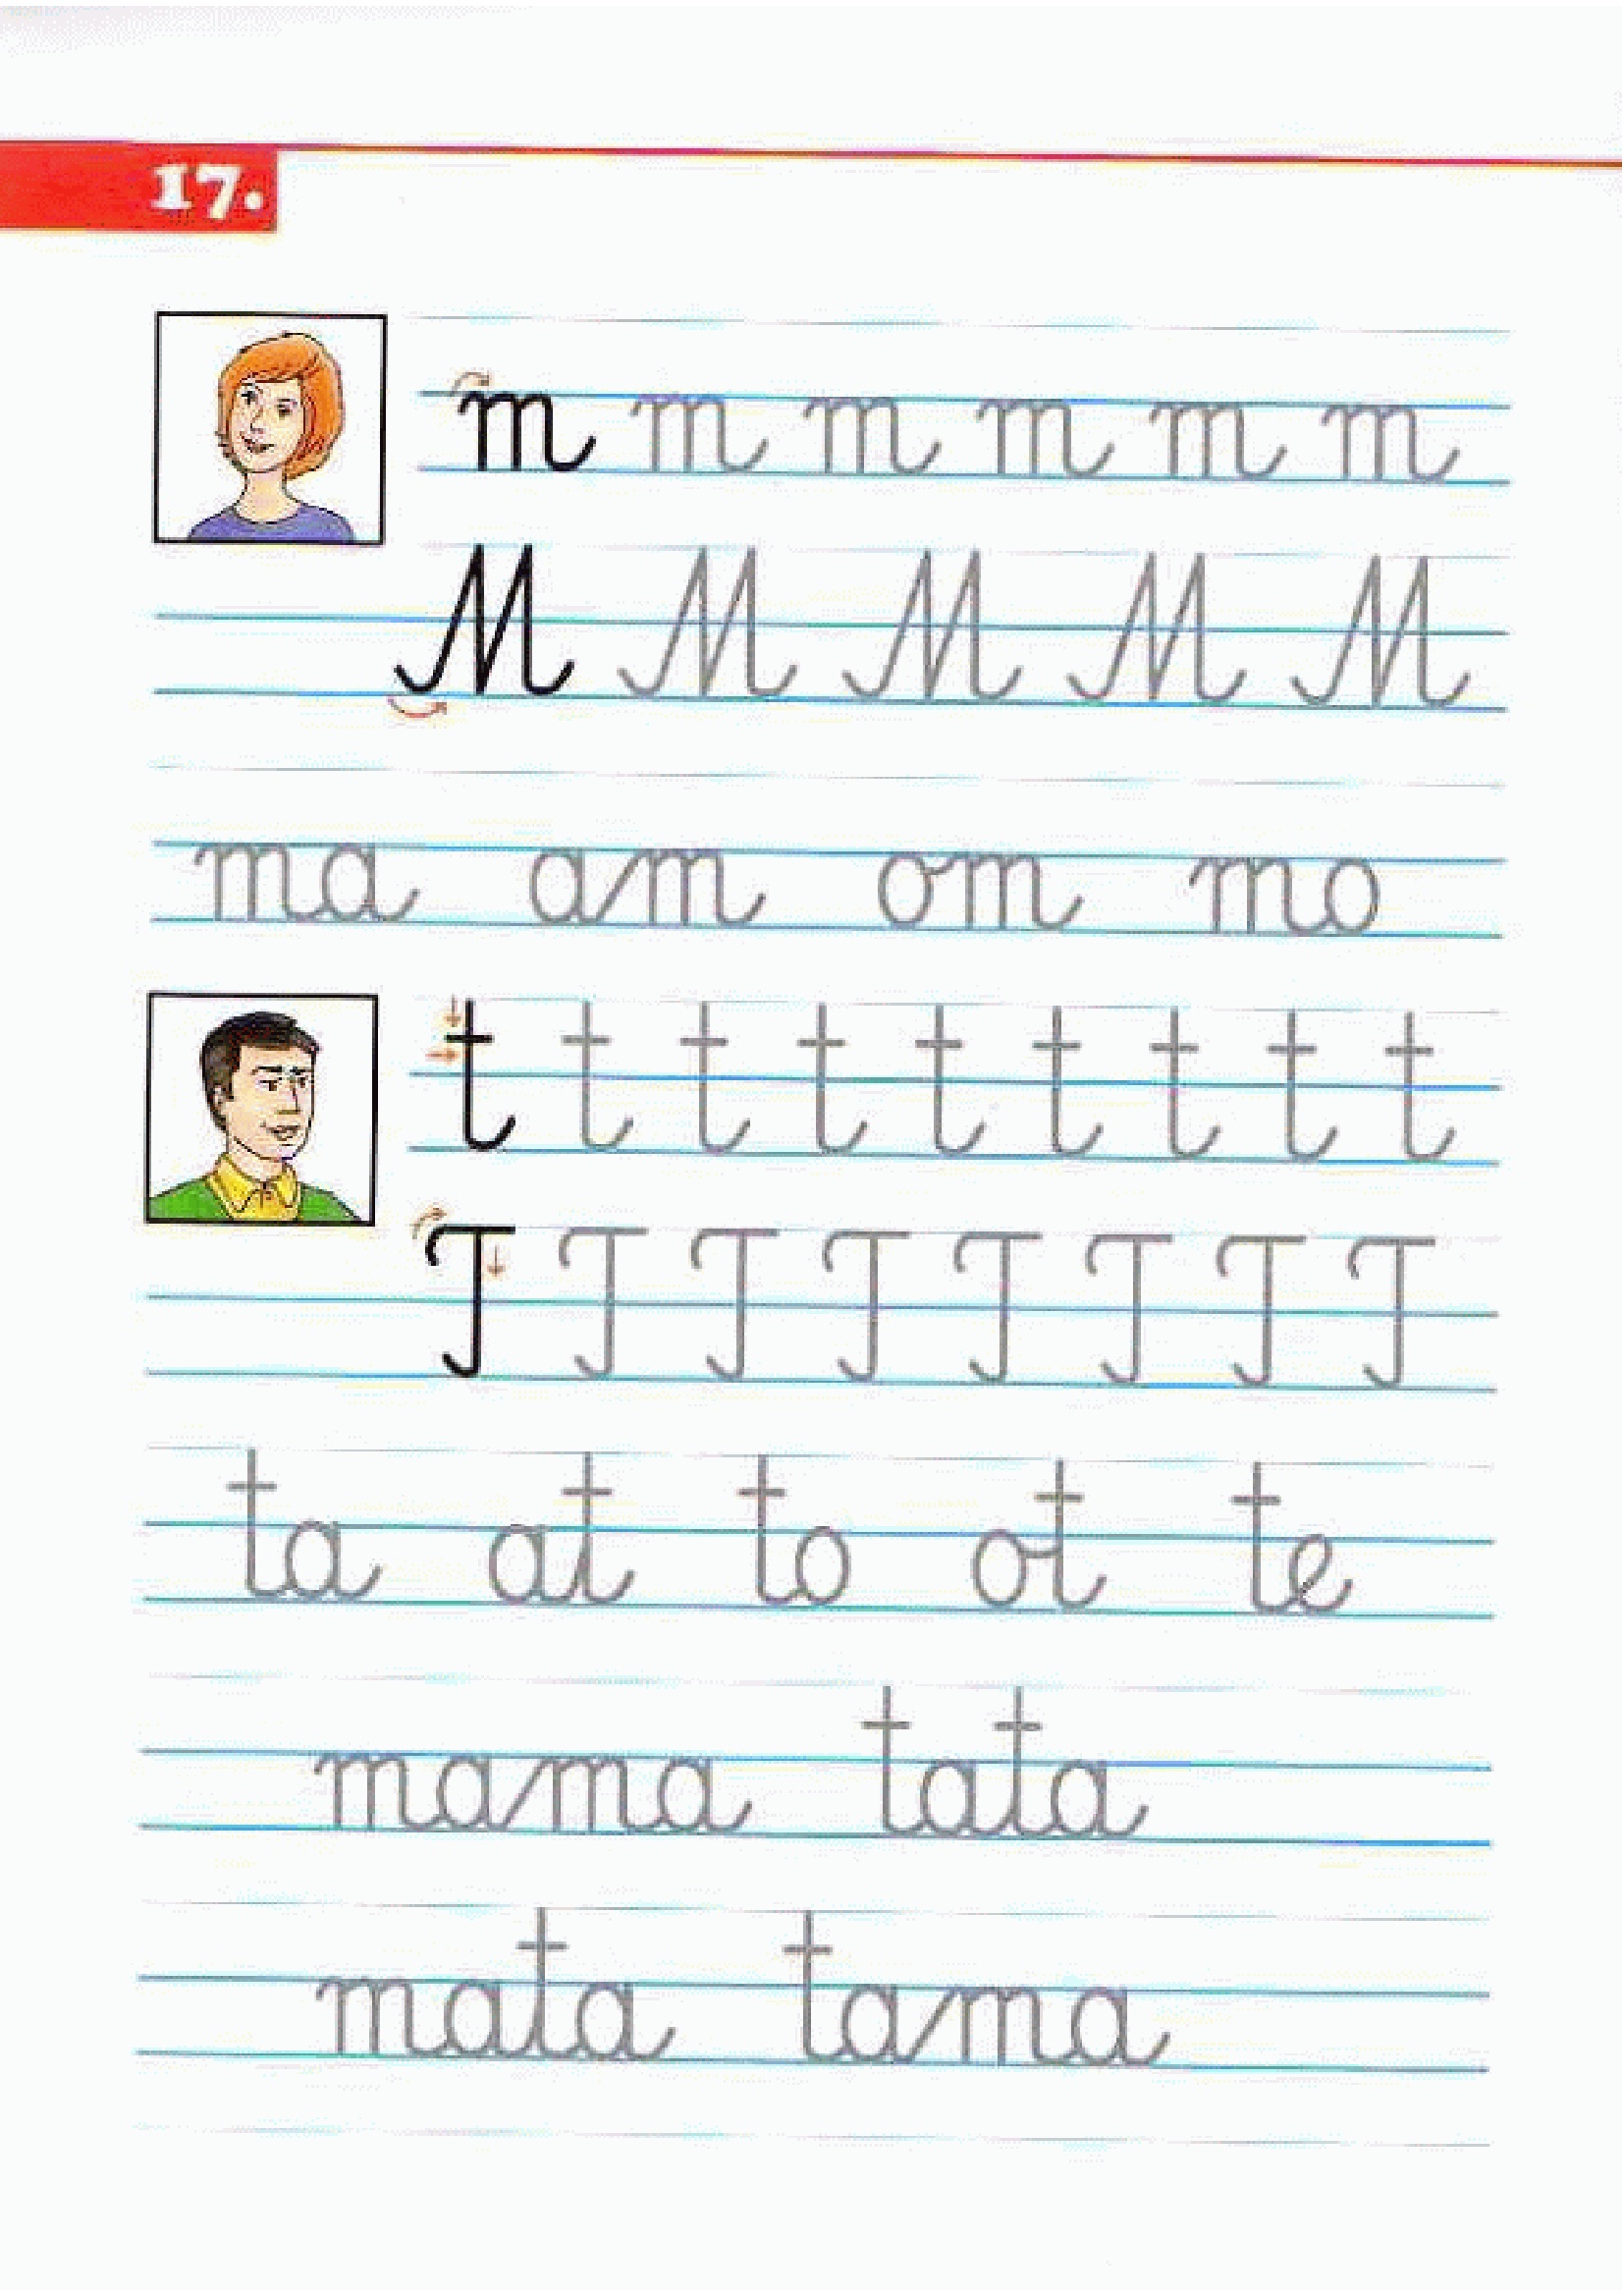 17.
m m m m m m
M M M M M
ma am om mo
t t t t t t t t t
T T T T T T T T
ta at to ot te
mama tata
mata tama